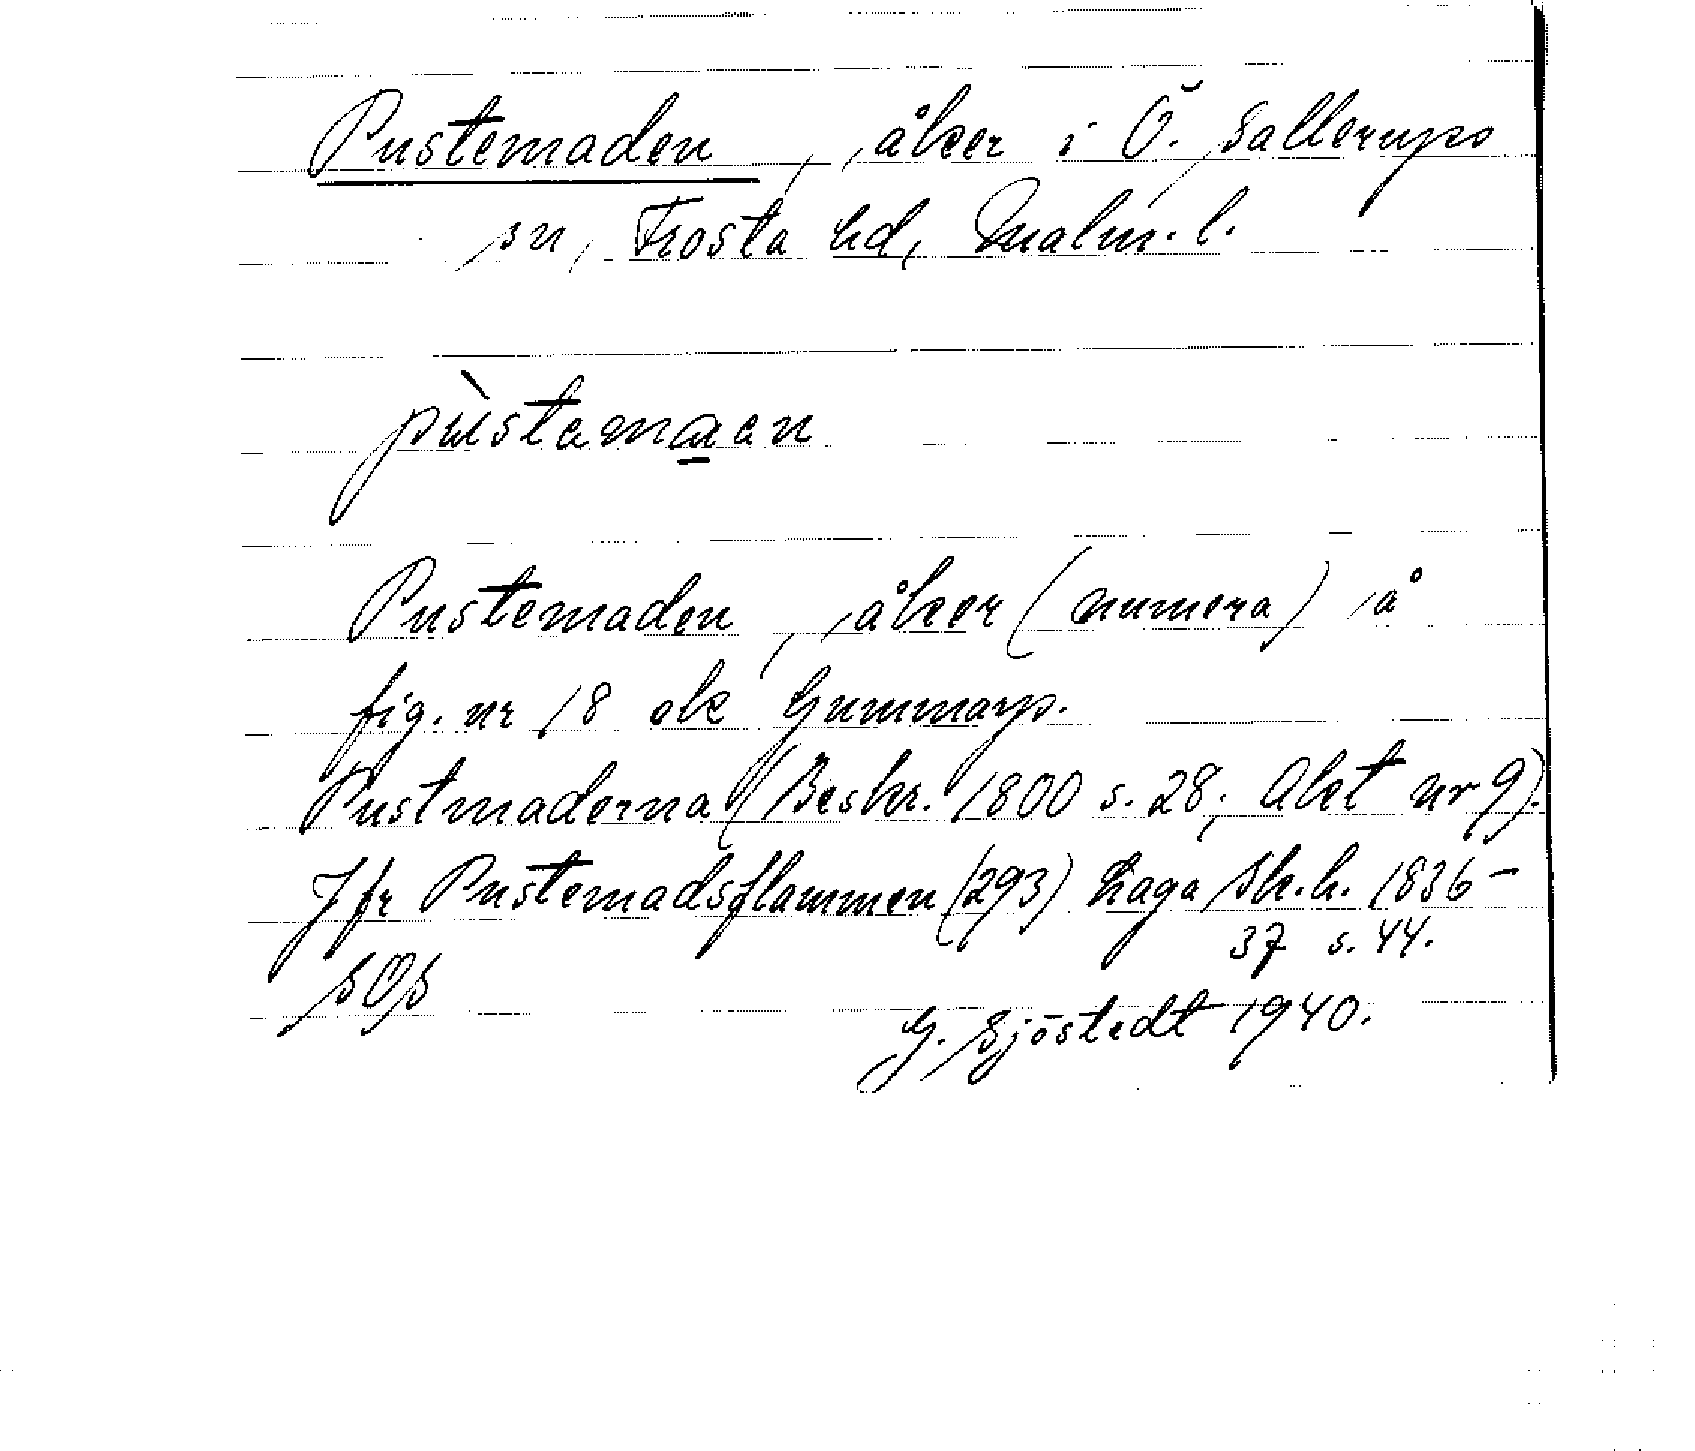 Pustemaden, åker i Ö. Sallerups
sn, Frosta hd, Malm. l.
pùstemaen
Pustemaden, åker (numera) å
fig. nr 18 ok Gummarp.
Pustmaderna (Beskr. 1800 s. 28, Akt nr 9).
Jfr Pustemadsflammen (293) Laga Sk.h. 1836-
37 s. 44.
SOS
G. Sjöstedt 1940.